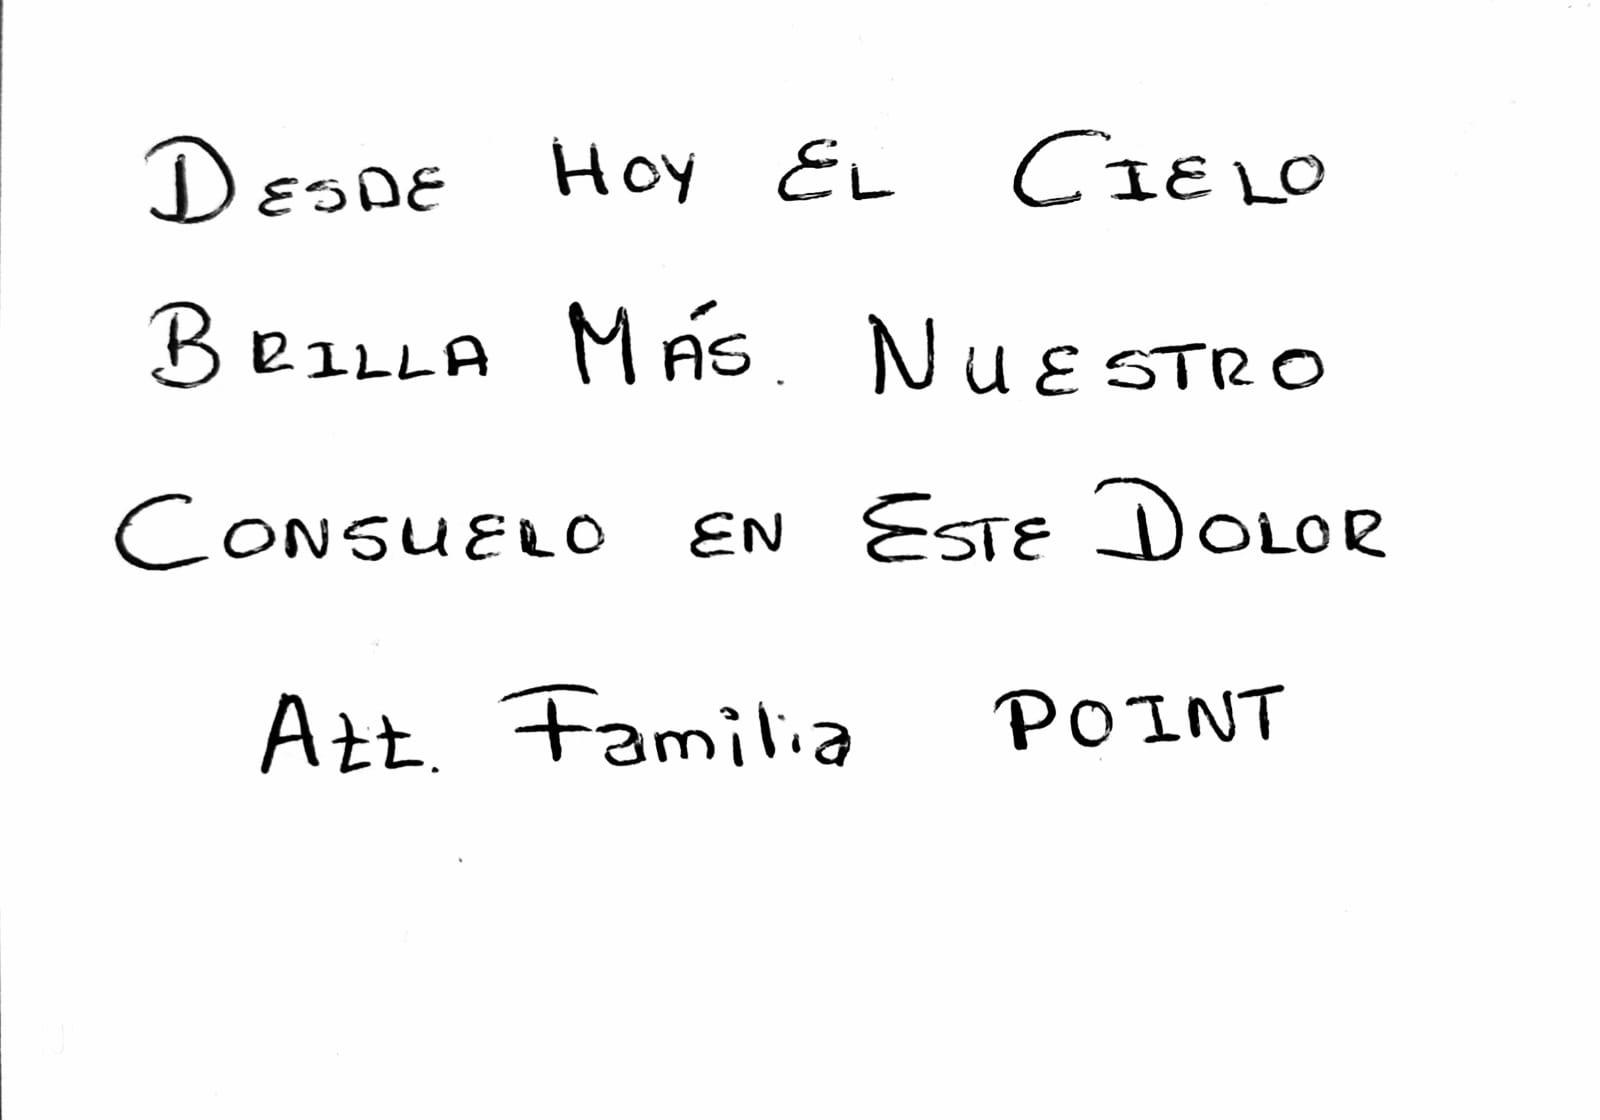 DESDE HOY EL CIELO
BRILLA MÁS. NUESTRO
CONSUELO EN ESTE DOLOR
Att. Familia POINT